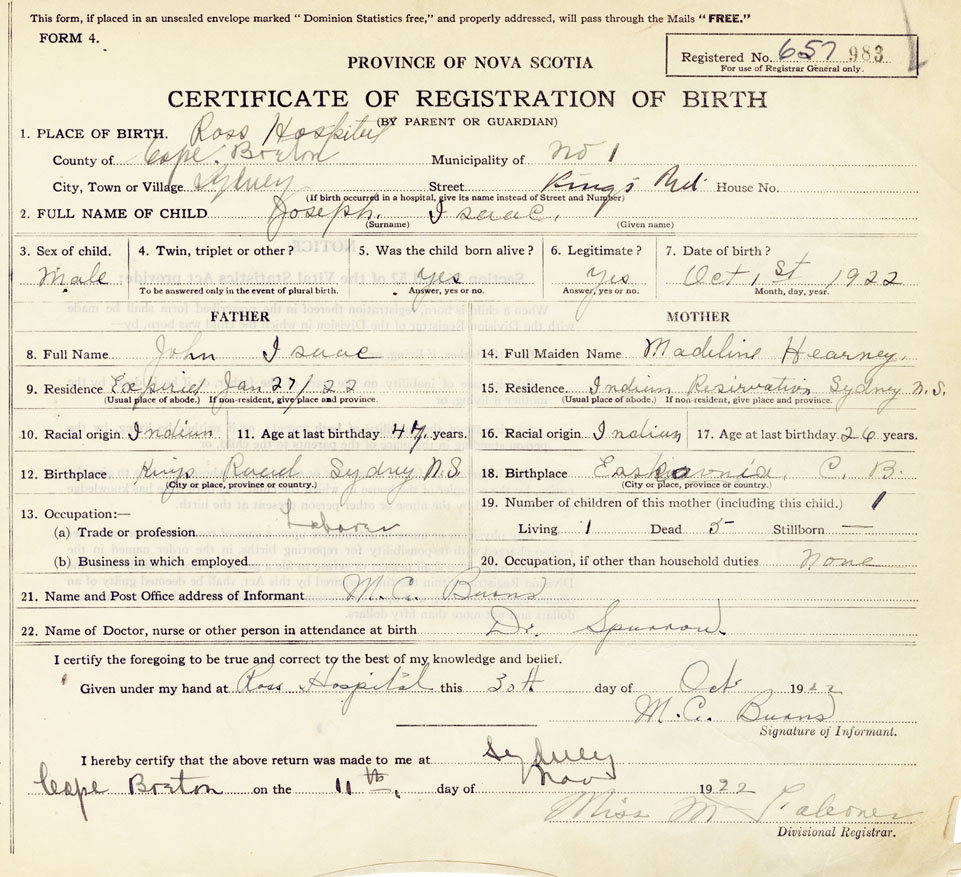 This form, if placed in an unsealed envelope marked “Dominion Statistics free,” and properly addressed, will pass through the Mails “FREE.”
FORM 4.
Registered No. 657 983
For use of Registrar General only.
PROVINCE OF NOVA SCOTIA
CERTIFICATE OF REGISTRATION OF BIRTH
(BY PARENT OR GUARDIAN)
1. PLACE OF BIRTH. Ross Hospital
County of Cape Breton Municipality of No 1
City, Town or Village Sydney Street Kings Rd. House No.
(If birth occurred in a hospital, give its name instead of Street and Number)
2. FULL NAME OF CHILD Joseph. Isaac.
(Surname) (Given name)
3. Sex of child. 4. Twin, triplet or other? 5. Was the child born alive? 6. Legitimate? 7. Date of birth?
Male Yes Yes Oct 1st 1922
To be answered only in the event of plural birth. Answer, yes or no. Answer, yes or no. Month, day, year.
FATHER MOTHER
8. Full Name John Isaac 14. Full Maiden Name Madeline Hearney.
9. Residence Jan 27/22 15. Residence. Indian Resirvation Sydney N.S.
(Usual place of abode.) If non-resident, give place and province. (Usual place of abode.) If non-resident, give place and province.
10. Racial origin Indian 11. Age at last birthday 47 years. 16. Racial origin Indian 17. Age at last birthday 26 years.
12. Birthplace Kings Road Sydney N.S. 18. Birthplace C. B.
(City or place, province or country.) (City or place, province or country.)
19. Number of children of this mother (including this child.) 1
13. Occupation:—
(a) Trade or profession Laborer Living 1 Dead 5 Stillborn —
(b) Business in which employed 20. Occupation, if other than household duties None
21. Name and Post Office address of Informant M. C. Burns
22. Name of Doctor, nurse or other person in attendance at birth Dr. Sparrow.
I certify the foregoing to be true and correct to the best of my knowledge and belief.
Given under my hand at Ross Hospital this 30th day of Oct 1922
M. C. Burns
Signature of Informant.
I hereby certify that the above return was made to me at Sydney
Cape Breton on the 11th. day of Nov 1922
Miss M
Divisional Registrar.